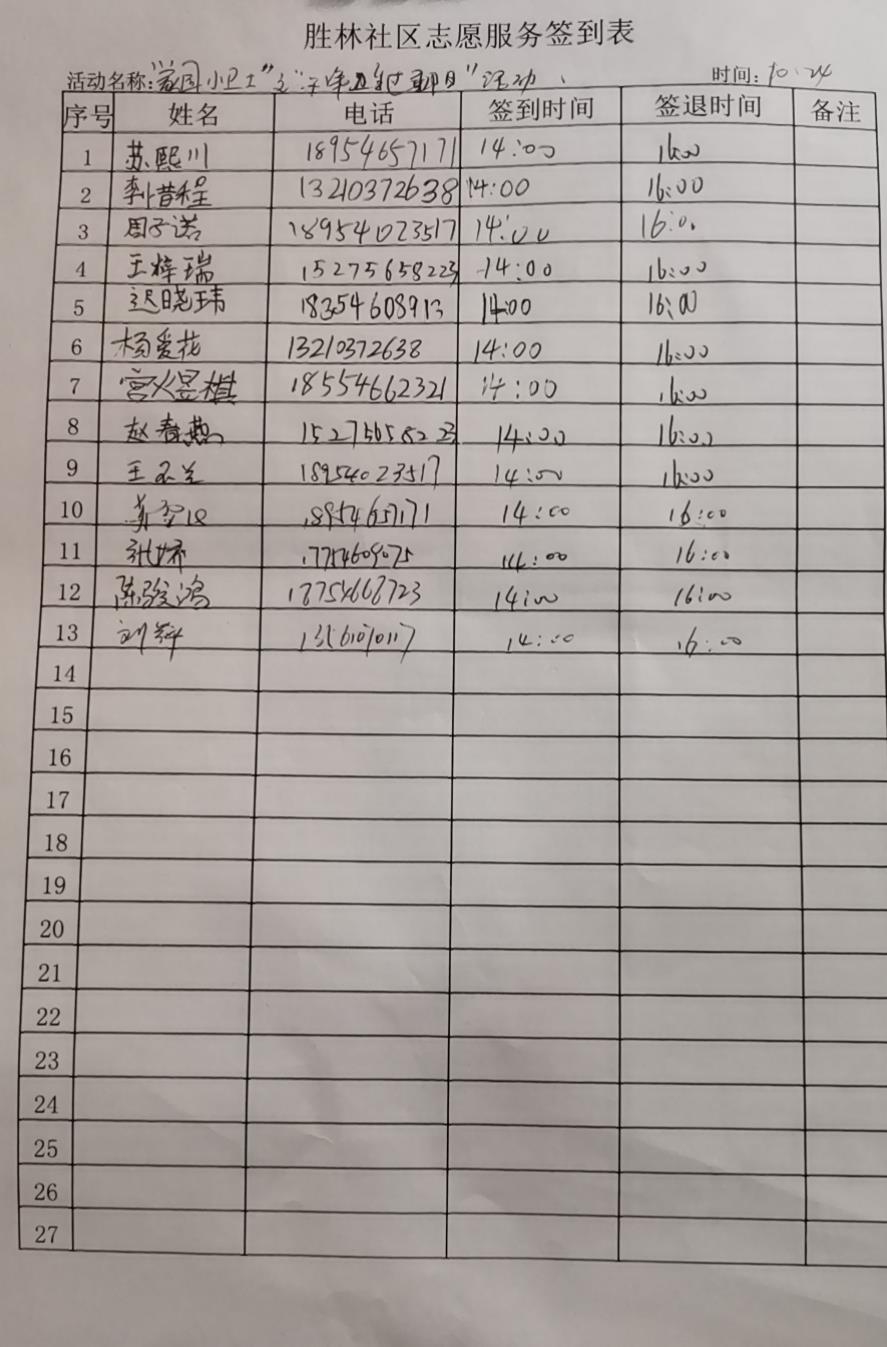 胜林社区志愿服务签到表
活动名称:"家园小卫士"之 活动 时间:10.24
序号 姓名 电话 签到时间 签退时间 备注
1 苏熙川 18954657171 14:00 16:00
2 李惜程 13210372638 14:00 16:00
3 周子诺 18954023517 14:00 16:0
4 王梓瑞 15275658223 14:00 16:00
5 迟晓玮 18354608913 14:00 16:00
6 杨爱花 13210372638 14:00 16:00
7 宫火昱棋 18554662321 14:00 16:00
8 赵春燕 15275658223 14:00 16:00
9 王 18954023517 14:00 16:00
10 18954657171 14:00 16:00
11 张娇 17754609075 14:00 16:00
12 陈骏鸿 18754668723 14:00 16:00
13 刘 14:00 16:00
14
15
16
17
18
19
20
21
22
23
24
25
26
27